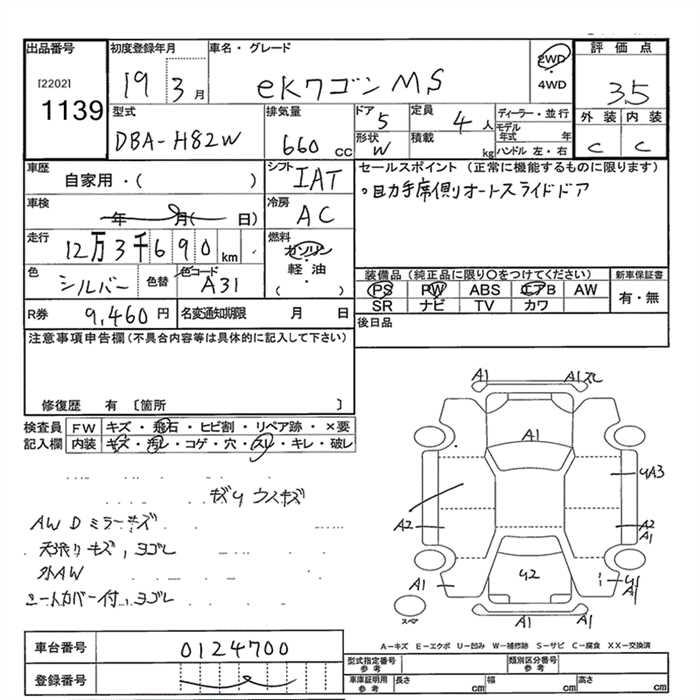 出品番号 初度登録年月 車名・グレード 評価点
[2202]
1139
19 3月
ekワゴン MS
2WD
・
4WD
3.5
外装 内装
C C
型式
DBA-H82W
排気量
660 cc
ドア 5
形状 W
定員 4人
積載 kg
ディーラー・並行
モデル年式 年
ハンドル 左・右
車歴
自家用・( )
シフト
IAT
セールスポイント (正常に機能するものに限ります)
・助手席側オートスライドドア
車検
年 月( 日)
冷房
AC
走行
12万3千690km
燃料
ガソリン
・
軽・油
( )
色
シルバー
色替
色コード
A31
装備品 (純正品に限り○をつけてください)
PS PW ABS エアB AW
SR ナビ TV カワ
新車保証書
有・無
R券 9,460円
名変通知期限 月 日
後日品
注意事項申告欄(不具合内容等は具体的に記入して下さい)
修復歴 有 〔箇所 〕
検査員
記入欄
FW キズ・飛石・ヒビ割・リペア跡・×要
内装 キズ・汚レ・コゲ・穴・スレ・キレ・破レ
AW Dミラーキズ
天張りキズ,ヨゴレ
外AW
シートカバー付,ヨゴレ
A1 A1ズレ
A1
U A3
A2 A2
A1 U2 U1 A1
A1 A1
スペア
A-キズ E-エクボ U-凹み W-補修跡 S-サビ C-腐食 XX-交換済
車台番号 0124700
登録番号
型式指定番号
参考
類別区分番号
参考
車庫証明用
参考
長さ cm 幅 cm 高さ cm